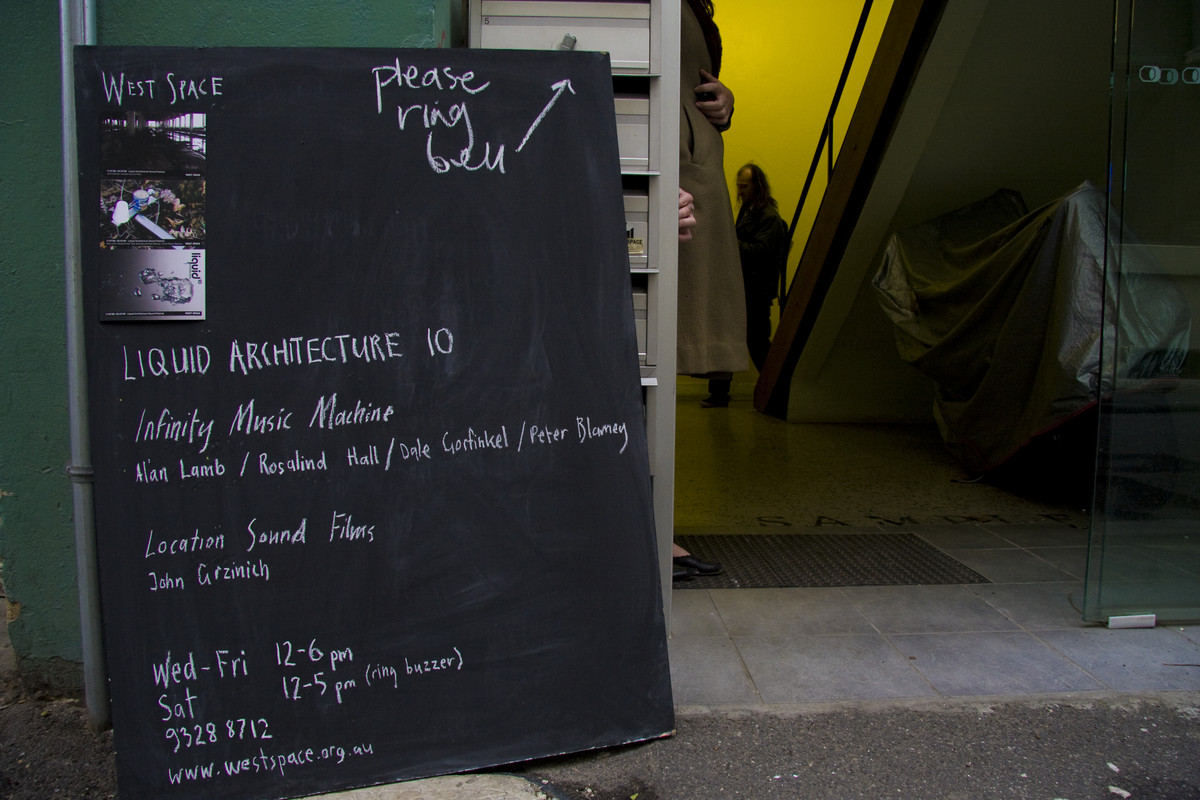 WEST SPACE
please
ring
bell
liquid
LIQUID ARCHITECTURE 10
Infinity Music Machine
Alan Lamb / Rosalind Hall / Dale Gorfinkel / Peter Blamey
Location Sound Films
John Grzinich
Wed-Fri 12-6 pm
Sat 12-5 pm (ring buzzer)
9328 8712
www.westspace.org.au
5
SPACE